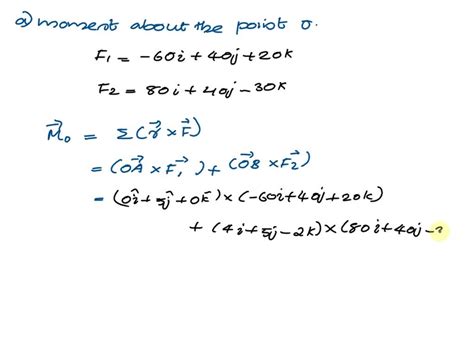 a) moment about the point o.
F1 = -60i + 40j + 20k
F2 = 80i + 40j - 30k
M⃗o = Σ(r⃗ × F⃗)
= (OA⃗ × F⃗1) + (OB⃗ × F2⃗)
= (0î + 5ĵ + 0k̂) × (-60i + 40j + 20k)
+ (4i + 5j - 2k) × (80i + 40j -